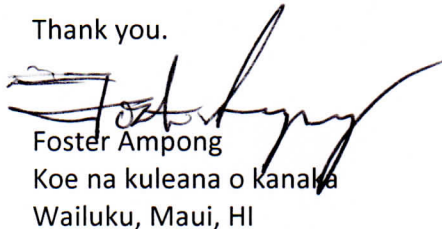 Thank you.
Foster Ampong
Foster Ampong
Koe na kuleana o kanaka
Wailuku, Maui, HI